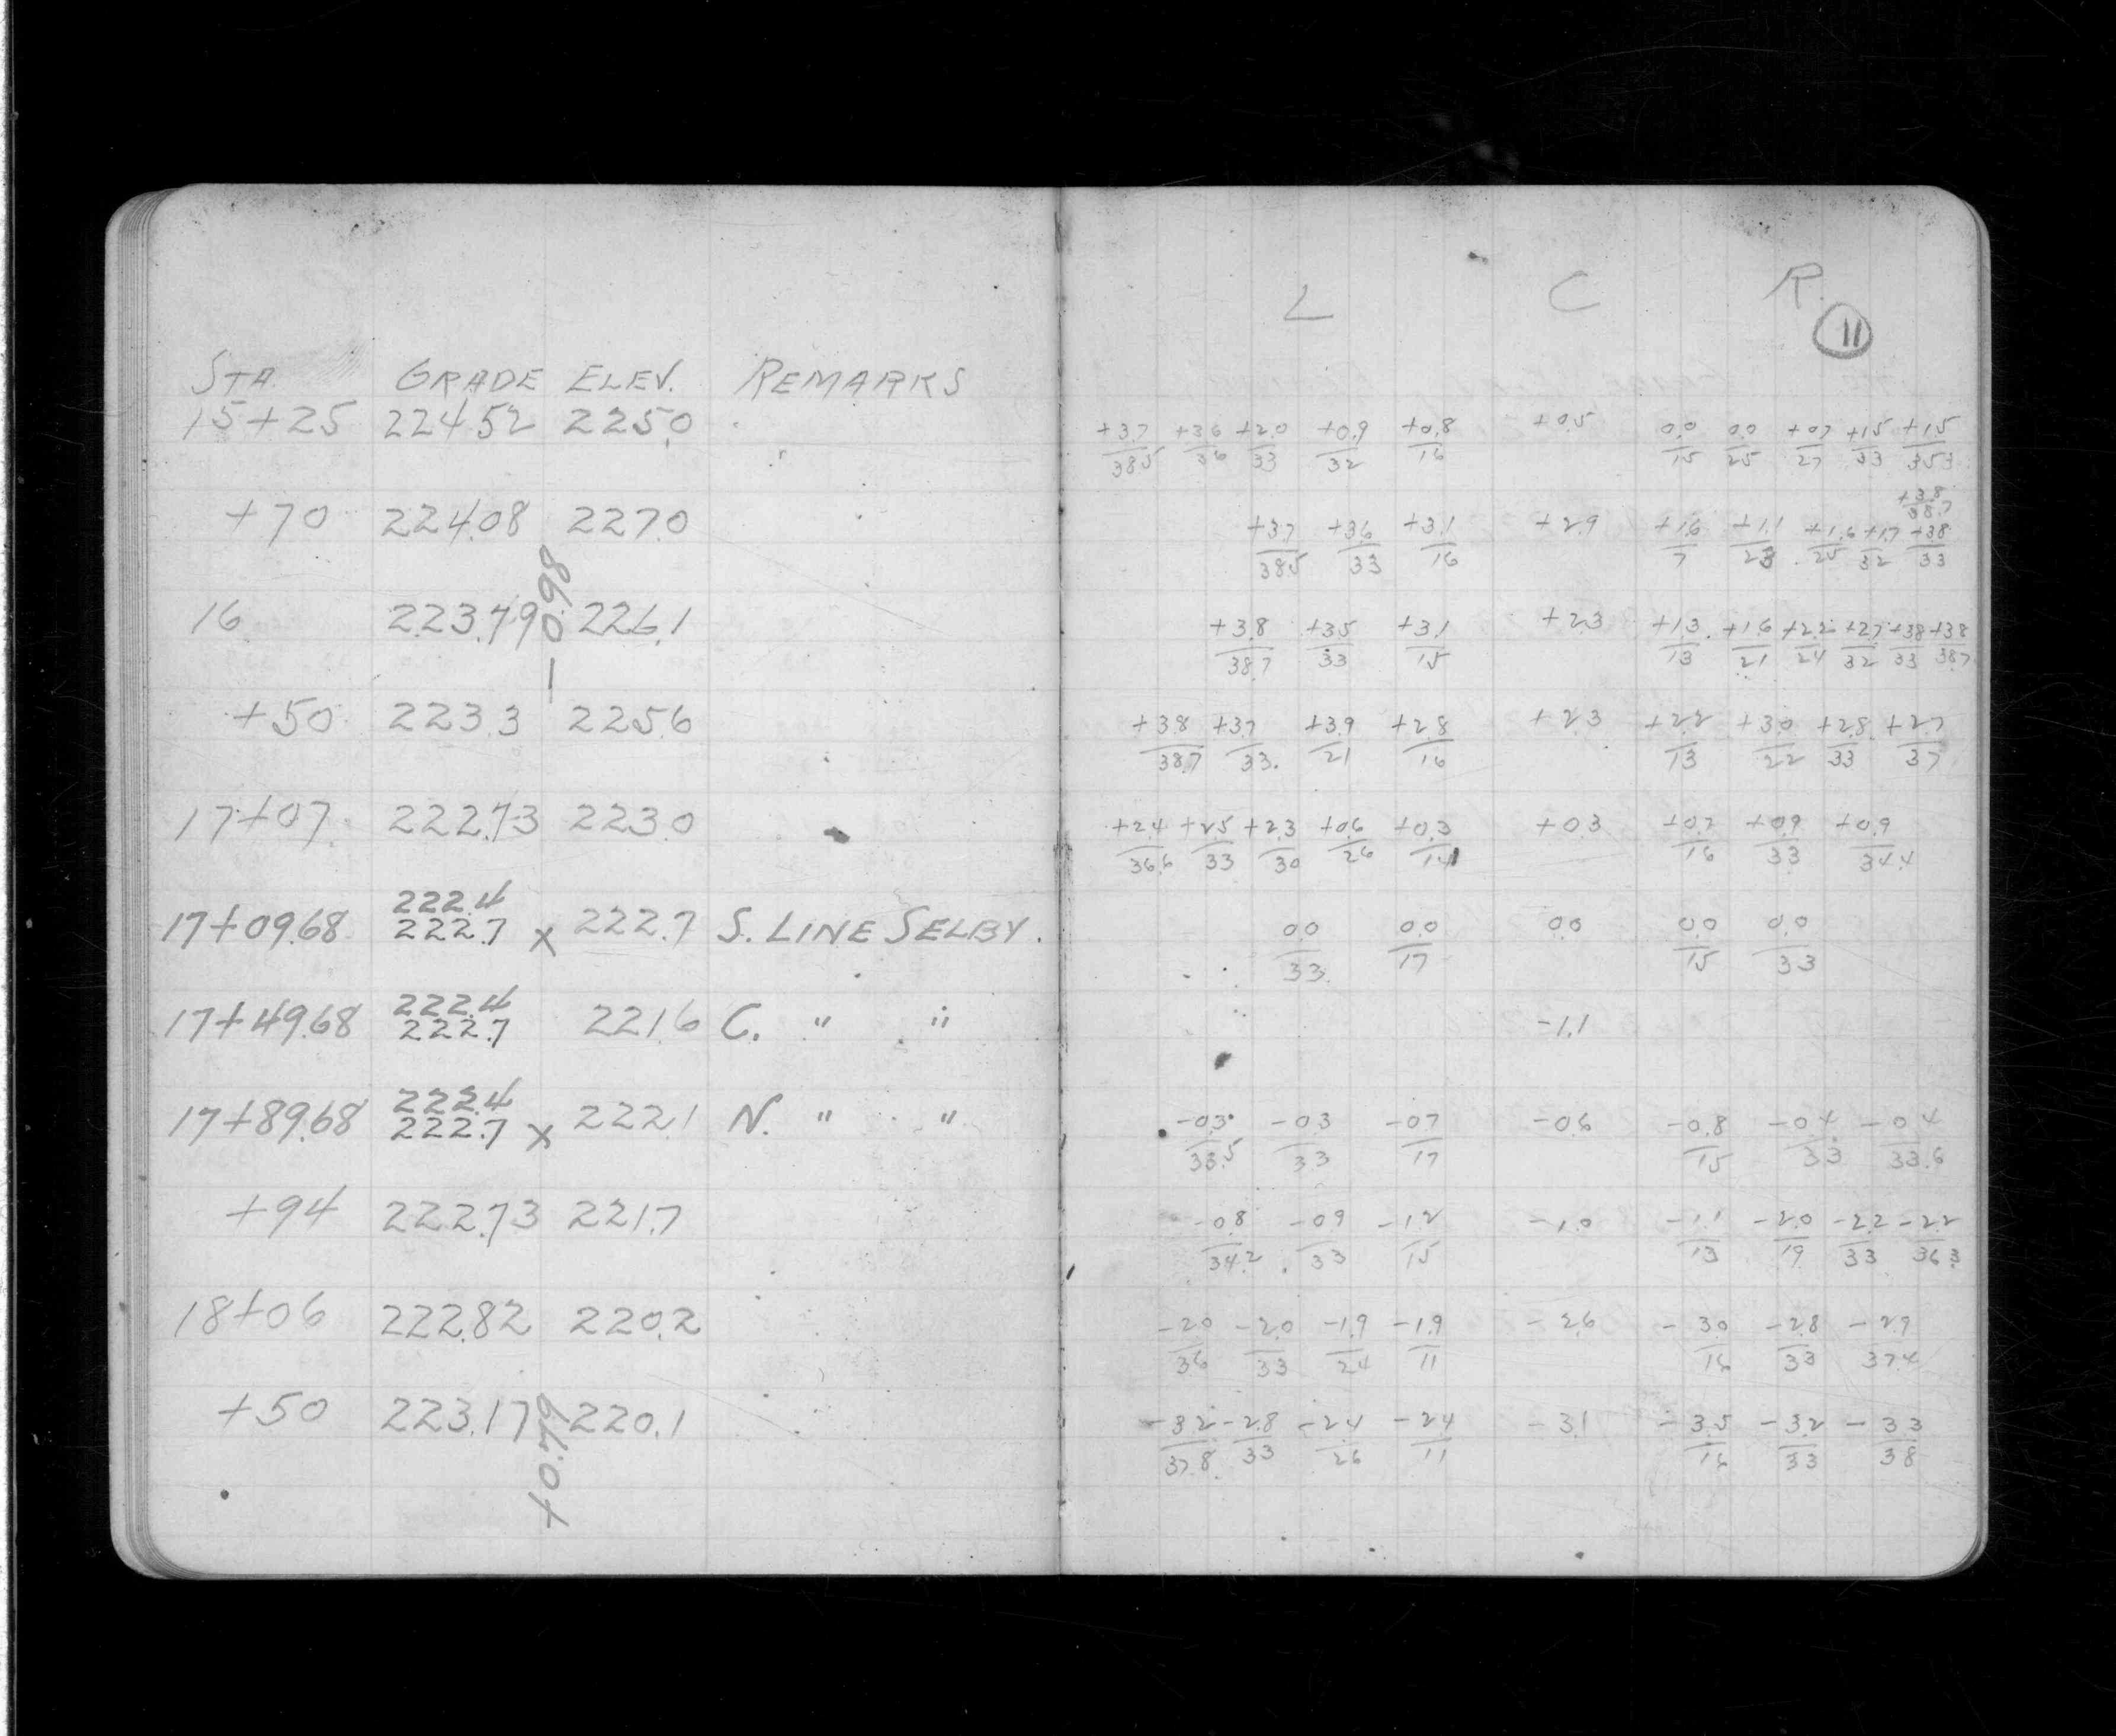 L C R.
11
STA. GRADE ELEV. REMARKS
15+25 224.52 225.0
+3.7/38.5 +3.6/36 +2.0/33 +0.9/32 +0.8/16 +0.5 0.0/15 0.0/25 +0.7/27 +1.5/33 +1.5/35.3
+3.8/38.7
+70 224.08 227.0
+3.7/38.5 +3.6/33 +3.1/16 +2.9 +1.6/7 +1.1/23 +1.6/25 +1.7/32 +3.8/33
-0.98
16 223.79 226.1
+3.8/38.7 +3.5/33 +3.1/15 +2.3 +1.3/13 +1.6/21 +2.2/24 +2.7/32 +3.8/33 +3.8/38.7
+50 223.3 225.6
+3.8/38.7 +3.7/33 +3.9/21 +2.8/16 +2.3 +2.2/13 +3.0/22 +2.8/33 +2.7/37
17+07 222.73 223.0
+2.4/36.6 +2.5/33 +2.3/30 +0.6/26 +0.3/14 +0.3 +0.2/16 +0.9/33 +0.9/34.4
222.4
17+09.68 222.7 x 222.7 S. LINE SELBY.
0.0/33 0.0/17 0.0 0.0/15 0.0/33
222.4
17+49.68 222.7 221.6 C. " "
-1.1
222.4
17+89.68 222.7 x 222.1 N. " "
-0.3/33.5 -0.3/33 -0.7/17 -0.6 -0.8/15 -0.4/33 -0.4/33.6
+94 222.73 221.7
-0.8/34.2 -0.9/33 -1.2/15 -1.0 -1.1/13 -2.0/19 -2.2/33 -2.2/36.3
18+06 222.82 220.2
-2.0/36 -2.0/33 -1.9/24 -1.9/11 -2.6 -3.0/16 -2.8/33 -2.9/37.4
+50 223.17 220.1
-3.2/37.8 -2.8/33 -2.4/26 -2.4/11 -3.1 -3.5/16 -3.2/33 -3.3/38
+0.79